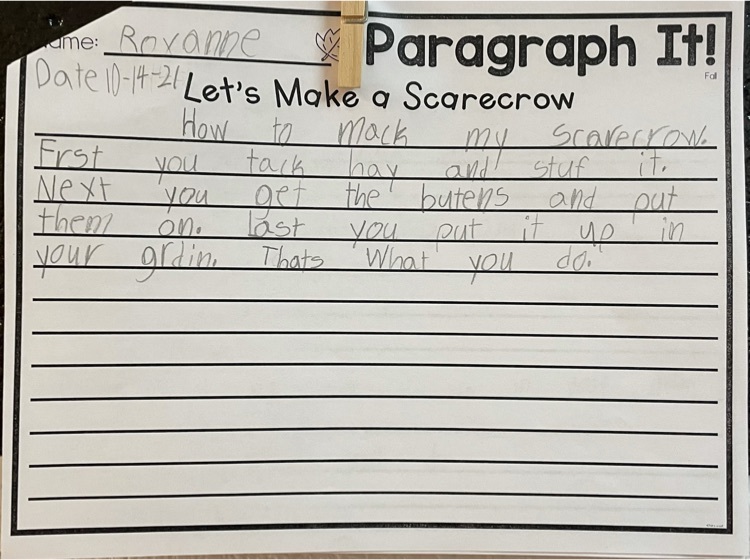 Name: Roxanne
Paragraph It!
Fall
Date 10-14-21
Let's Make a Scarecrow
How to mack my scarecrow.
Frst you tack hay and stuf it.
Next you get the butens and put
them on. last you put it up in
your grdin. Thats What you do.